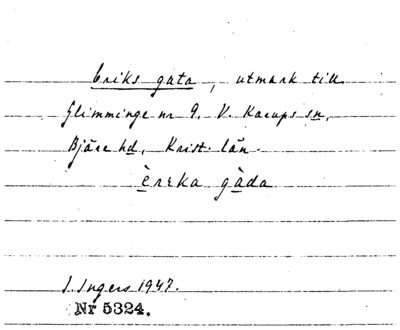 Eriks gata, utmark till
Glimminge nr 9. V. Karups sn,
Bjäre hd, Krist. län.
èreka gàda
I. Ingers 1947.
Nr 5324.